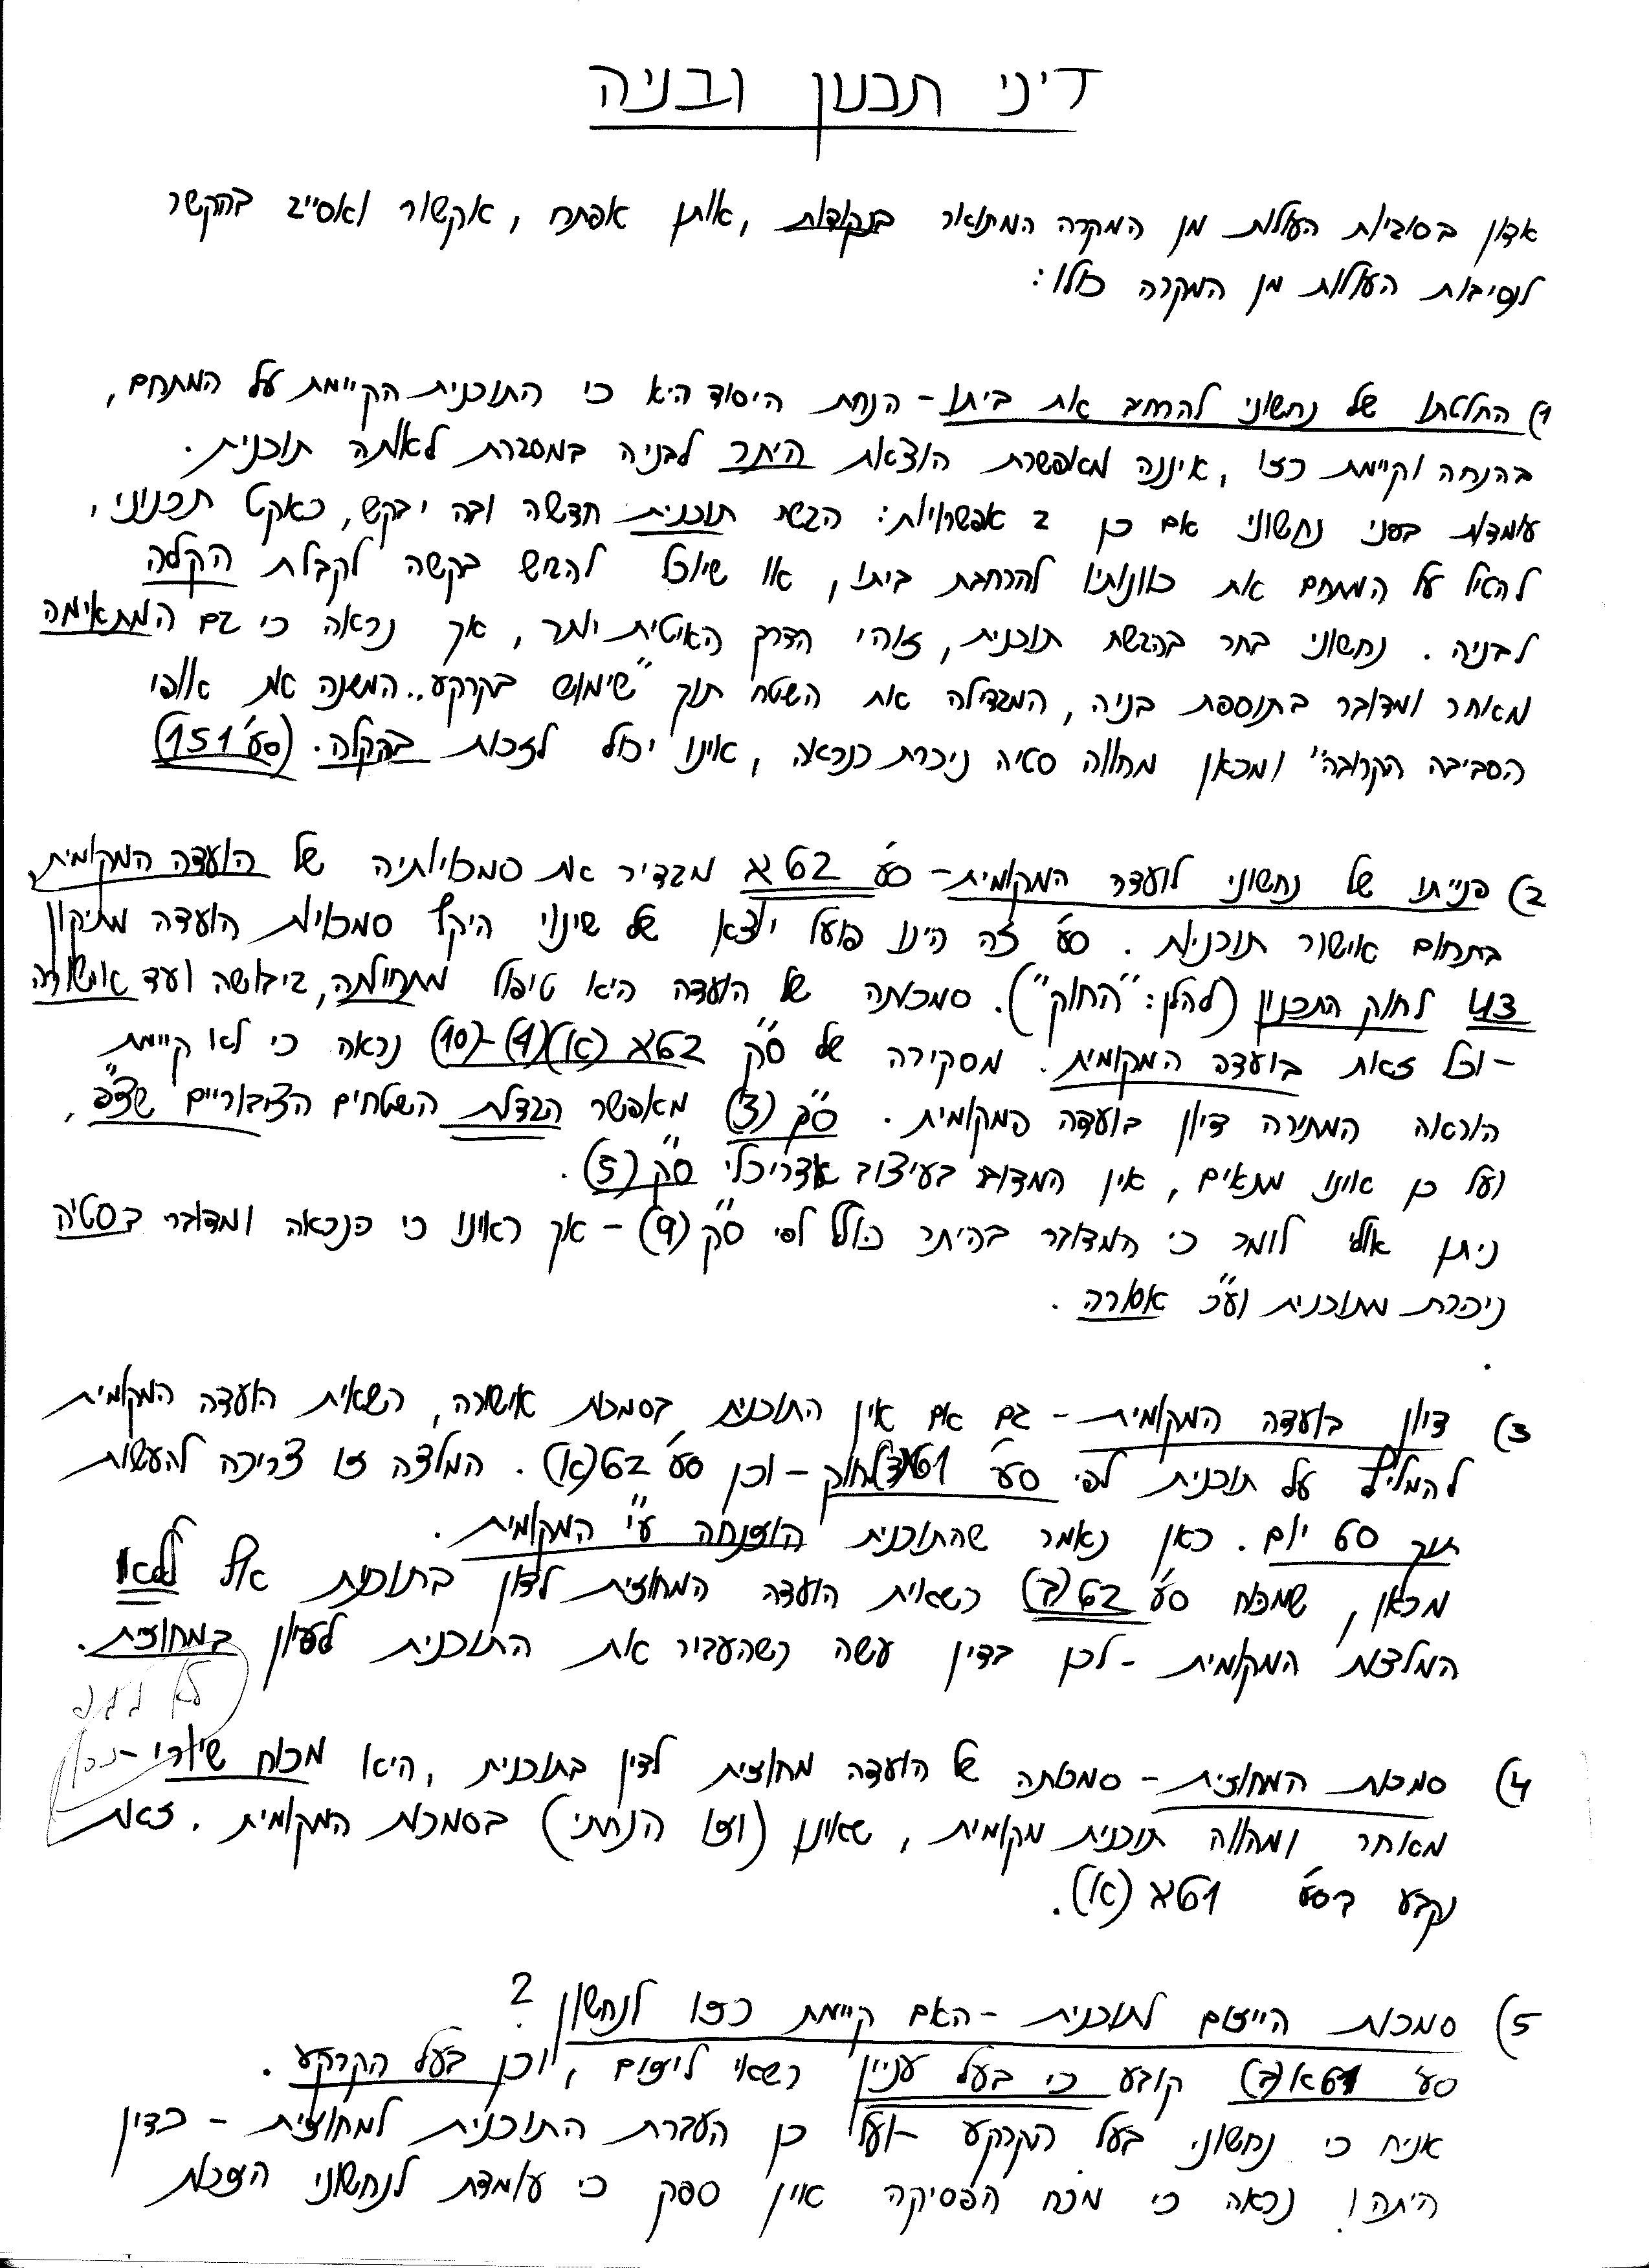 דיני תכנון ובניה
אדון בסוגיות העולות מן המקרה המתואר בנקודות, אותן אפתח, אקשור ואסייג בהקשר
לנסיבות העולות מן המקרה כולו:
1) החלטתו של נחשוני להרחיב את ביתו - הנחת היסוד היא כי התוכנית הקיימת על המתחם,
בהנחה וקיימת כזו, איננה מאפשרת הוצאת היתר לבניה במסגרת לאותה תוכנית.
עומדות בפני נחשוני אם כן 2 אפשרויות: הגשת תוכנית חדשה ובה יבקש, כאקט תכנוני,
להחיל על המתחם את כוונותיו להרחבת ביתו, או שיוכל להגיש בקשה לקבלת הקלה
לבניה. נחשוני בחר בהגשת תוכנית, זוהי הדרך האיטית יותר, אך נראה כי גם המתאימה
מאחר ומדובר בתוספת בניה, המגדילה את השטח תוך "שימוש בקרקע.. המשנה את אופי
הסביבה הקרובה" ומכאן מהווה סטיה ניכרת כנראה, אינו יכול לזכות בהקלה. (סע' 151)
2) פנייתו של נחשוני לועדה המקומית - סע' 62א מגדיר את סמכויותיה של הועדה המקומית
בתחום אישור תוכניות. סע' זה הינו פועל יוצא של שינוי היקף סמכויות הועדה מתיקון
43 לחוק התכנון (להלן: "החוק"). סמכותה של הועדה היא טיפול מתחולתה, גיבושה ועד אישורה
- וכל זאת בועדה המקומית. מסקירה של ס"ק 62א (א)(1)-(10) נראה כי לא קיימת
הוראה המתירה דיון בועדה המקומית. ס"ק (3) מאפשר הגדלת השטחים הציבוריים שצ"פ,
ועל כן אינו מתאים, אין המדובר בעיצוב אדריכלי ס"ק (5).
ניתן אולי לומר כי המדובר בהיתר כולל לפי ס"ק (9) - אך ראינו כי כנראה ומדובר בסטיה
ניכרת מתוכנית וע"כ אסורה.
3) דיון בועדה המקומית - גם אם אין התוכנית בסמכות אישורה, רשאית הועדה המקומית
להמליץ על תוכנית לפי סע' 61 לחוק - וכן סע' 62(א). המלצה זו צריכה להעשות
תוך 60 יום. כאן נאמר שהתוכנית הוזנחה ע"י המקומית.
מכאן, שמכח סע' 62(ג) רשאית הועדה המחוזית לדון בתוכנית אף ללא
המלצת המקומית - לכן בדין עשה כשהעביר את התוכנית לעיון במחוזית.
4) סמכות המחוזית - סמכותה של הועדה מחוזית לדון בתוכנית, היא מכוח שיורי - נכון
מאחר ומהווה תוכנית מקומית, שאינן (וזו הנחתי) בסמכות המקומית. זאת
נקבע בסע' 61א (א).
5) סמכות הייזום לתוכנית - האם קיימת כזו לנחשון?
סע' 61א(ג) קובע כי בעל עניין רשאי ליזום, וכן בעל הקרקע.
אניח כי נחשוני בעל הקרקע - ועל כן העברת התוכנית למחוזית - כדין
היתה! נראה כי מכח הפסיקה אין ספק כי עומדת לנחשוני הזכות